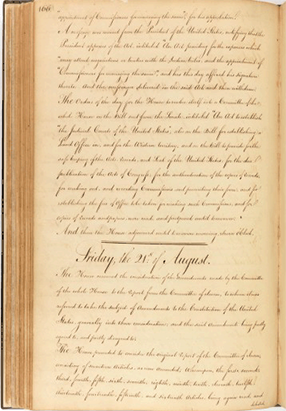 166
appointment of Commissioners for managing the same", for his approbation.
A message was received from the President of the United States, notifying that the
President approves of the Act, entitled "An Act providing for the expences which
may attend negotiations or treaties with the Indian tribes, and the appointment of
Commissioners for managing the same", and has this day affixed his signature
thereto. And the messenger delivered in the said Act, and then withdrew.
The Orders of the day for the House to resolve itself into a Committee of the
whole House on the Bill sent from the Senate, entitled "An Act to establish
the Judicial Courts of the United States", also on the Bill for establishing a
Land Office in, and for the Western territory, and on the Bill to provide for the
safe keeping of the Acts, Records, and Seal of the United States, for the due
publication of the Acts of Congress, for the authentication of the copies of Records,
for making out, and recording Commissions and prescribing their form, and for
establishing the fees of Office to be taken for making such Commissions, and for
copies of Records and papers, were read, and postponed until tomorrow.
And then the House adjourned until tomorrow morning, eleven o'Clock.
Friday, the 21st of August.
The House resumed the consideration of the Amendments made by the Committee
of the whole House to the Report from the Committee of eleven, to whom it was
referred to take the subject of Amendments to the Constitution of the United
States, generally into their consideration; and the said Amendments being partly
agreed to, and partly disagreed to;
The House proceeded to consider the original Report of the Committee of eleven,
consisting of seventeen Articles, as now amended; Whereupon, the first, second,
third, fourth, fifth, sixth, seventh, eighth, ninth, tenth, eleventh, twelfth,
thirteenth, fourteenth, fifteenth, and sixteenth Articles, being again read and
debated